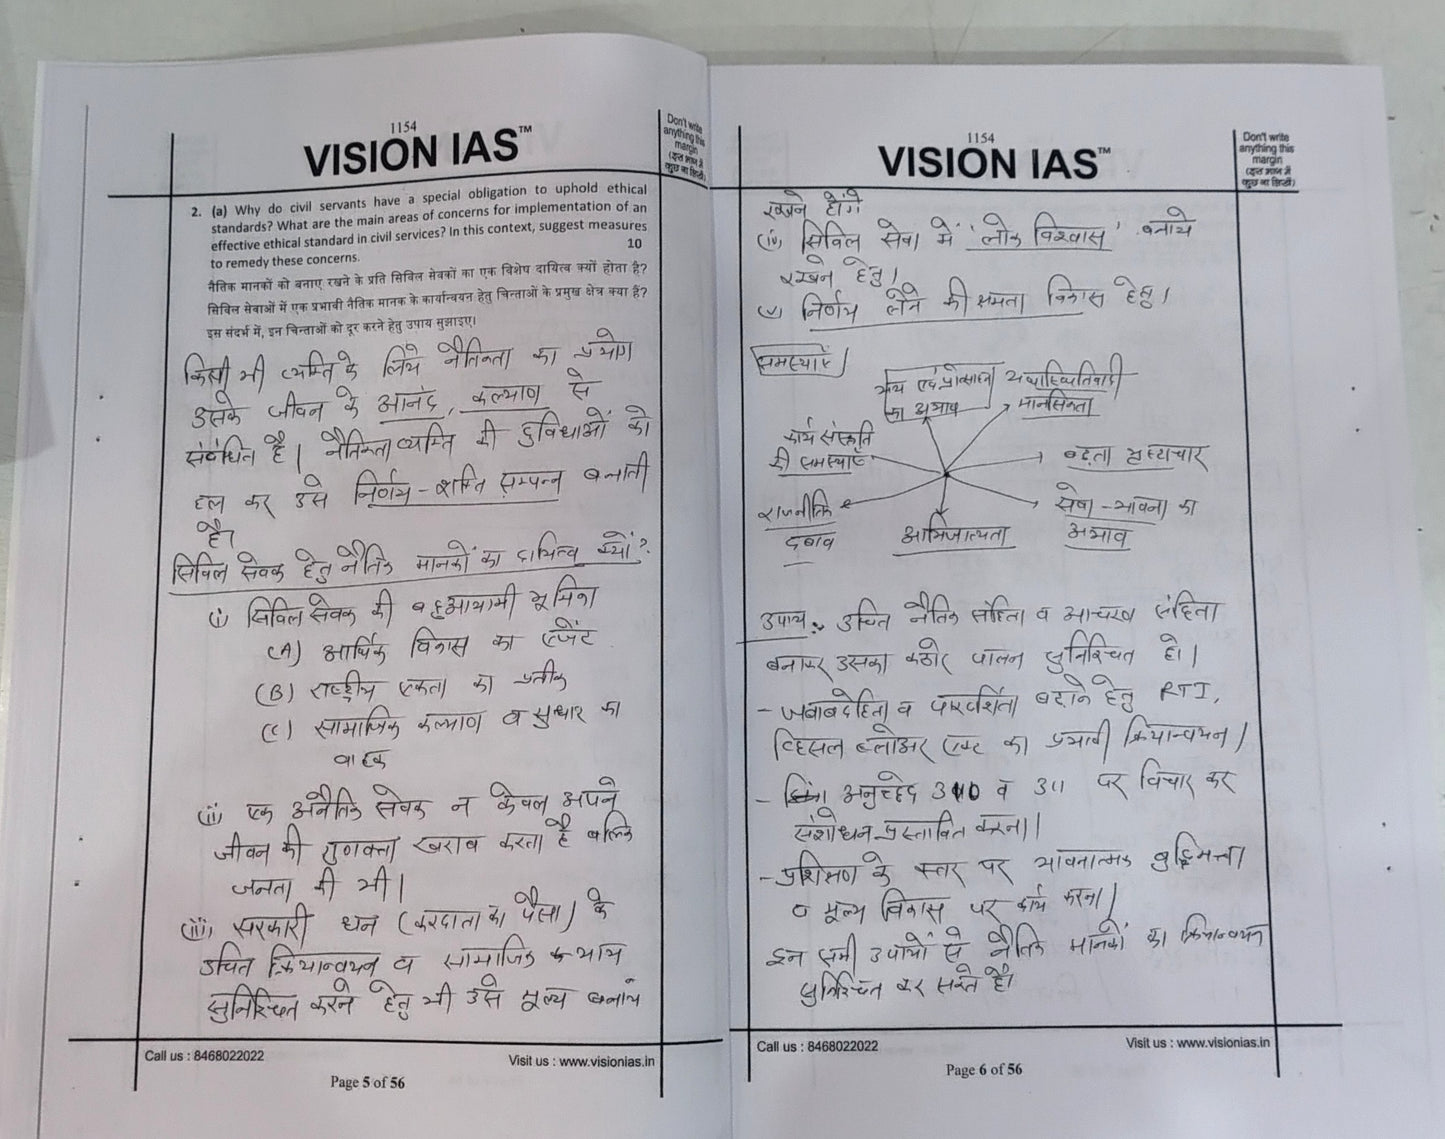 1154
VISION IAS™
Don't write
anything this
margin
(इस भाग में
कुछ ना लिखें)
2. (a) Why do civil servants have a special obligation to uphold ethical
standards? What are the main areas of concerns for implementation of an
effective ethical standard in civil services? In this context, suggest measures
to remedy these concerns. 10
नैतिक मानकों को बनाए रखने के प्रति सिविल सेवकों का एक विशेष दायित्व क्यों होता है?
सिविल सेवाओं में एक प्रभावी नैतिक मानक के कार्यान्वयन हेतु चिन्ताओं के प्रमुख क्षेत्र क्या हैं?
इस संदर्भ में, इन चिन्ताओं को दूर करने हेतु उपाय सुझाइए।
किसी भी व्यक्ति के लिये नैतिकता का प्रयोग
उसके जीवन के आनंद, कल्याण से
संबंधित है। नैतिकता व्यक्ति की दुविधाओं को
हल कर उसे निर्णय-शक्ति सम्पन्न बनाती
है।
सिविल सेवक हेतु नैतिक मानकों का दायित्व क्यों?
(i) सिविल सेवक की बहुआयामी भूमिका
(A) आर्थिक विकास का एजेंट
(B) राष्ट्रीय एकता का प्रतीक
(C) सामाजिक कल्याण व सुधार का
वाहक
(ii) एक अनैतिक सेवक न केवल अपने
जीवन की गुणवत्ता खराब करता है बल्कि
जनता की भी।
(iii) सरकारी धन (करदाता का पैसा) के
उचित क्रियान्वयन व सामाजिक न्याय
सुनिश्चित करने हेतु भी उसे मूल्य बनाये
Call us : 8468022022
Visit us : www.visionias.in
Page 5 of 56
1154
VISION IAS™
Don't write
anything this
margin
(इस भाग में
कुछ ना लिखें)
रखने होंगे
(iv) सिविल सेवा में 'लोक विश्वास' बनाये
रखने हेतु।
(v) निर्णय लेने की क्षमता विकास हेतु।
समस्याएँ
एवं प्रोत्साहन
का अभाव
यथास्थितिवादी
मानसिकता
कार्य संस्कृति
की समस्याएँ
बढ़ता भ्रष्टाचार
राजनीतिक
दबाव
आभिजात्यता
सेवा-भावना का
अभाव
उपाय:- उचित नैतिक संहिता व आचरण संहिता
बनाकर उसका कठोर पालन सुनिश्चित हो।
- जवाबदेहिता व पारदर्शिता बढ़ाने हेतु RTI,
व्हिसल ब्लोअर एक्ट का प्रभावी क्रियान्वयन।
- अनुच्छेद 310 व 311 पर विचार कर
संशोधन प्रस्तावित करना।
- प्रशिक्षण के स्तर पर भावनात्मक बुद्धिमत्ता
व मूल्य विकास पर कार्य करना।
इन सभी उपायों से नैतिक मानकों का क्रियान्वयन
सुनिश्चित कर सकते हैं।
Call us : 8468022022
Visit us : www.visionias.in
Page 6 of 56